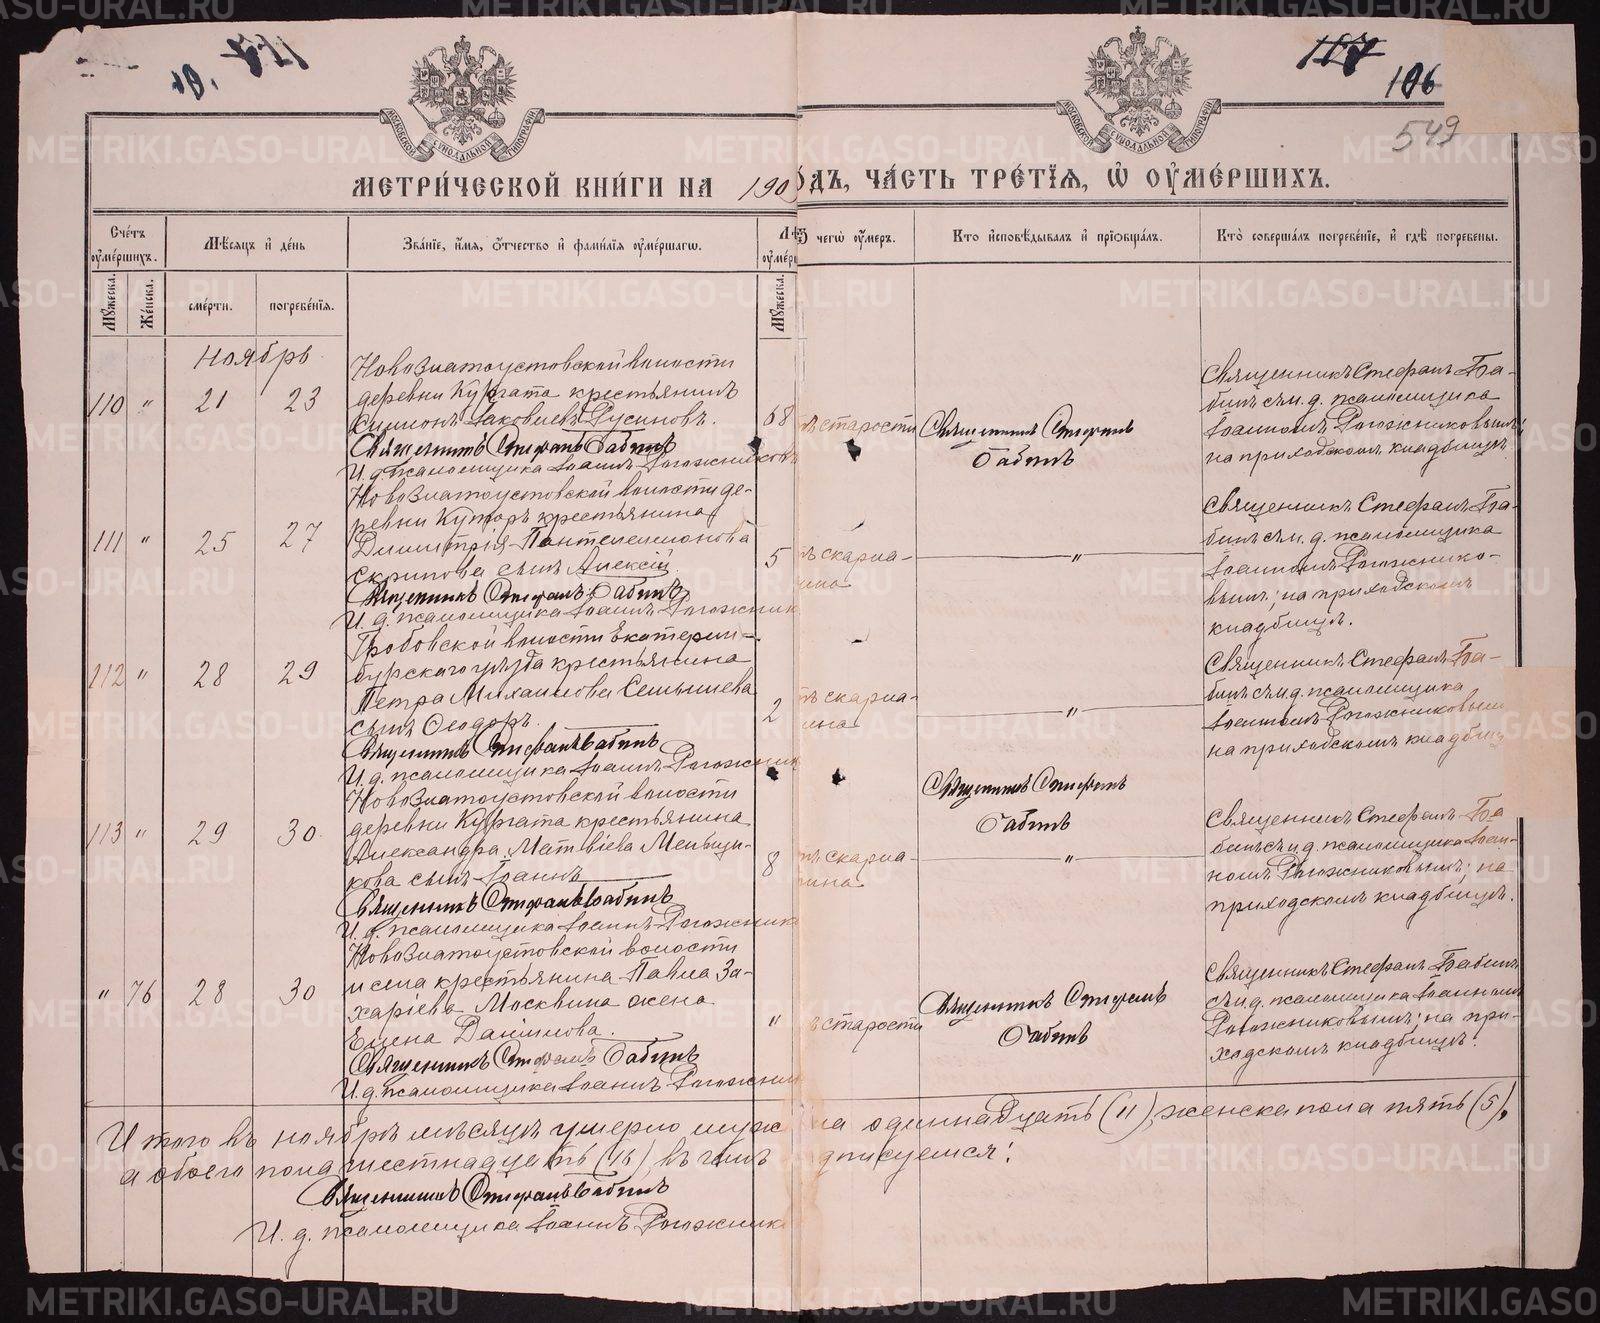 157
106
549
МОСКОВСКОЙ СѴНОДАЛЬНОЙ ТИПОГРАФІИ
МОСКОВСКОЙ СѴНОДАЛЬНОЙ ТИПОГРАФІИ
МЕТРИ́ЧЕСКОЙ КНИ́ГИ НА 190
ОДЪ, ЧА́СТЬ ТРЕ́ТІѦ, Ѡ ОУМЕ́РШИХЪ.
Сче́тъ оуме́ршихъ.
Мѣ́сѧцъ и҆ де́нь
Зва́нїе, и҆́мѧ, ѻ҆́тчество и҆ фами́лїѧ оуме́ршагѡ.
Ѿ чегѡ̀ оу҆́меръ.
Кто̀ и҆сповѣ́дывалъ и҆ прїѻбща́лъ.
Кто̀ соверша́лъ погребе́нїе, и҆ гдѣ̀ погребены̀.
Мꙋ́жеска.
Же́нска.
сме́рти.
погребе́нїѧ.
Мꙋ́жеска.
Ноябрь
110 " 21 23
Ново Златоустовской волости
деревни Кургата крестьянинъ
Симеонъ Іаковлевъ Русиновъ.
Священникъ Стефанъ Бабинъ
И. д. псаломщика Іоаннъ Рогожников
68
ъ старости
Священникъ Стефанъ
Бабинъ
Священникъ Стефанъ Ба-
бинъ съ и. д. псаломщика
Іоанномъ Рогожниковымъ;
на приходскомъ кладбищѣ.
111 " 25 27
Ново Златоустовской волости де-
ревни Куторъ крестьянина
Димитрія Пантелеимонова
Скрипова сынъ Алексій.
Священникъ Стефанъ Бабинъ
И. д. псаломщика Іоаннъ Рогожник
5
ъ скарла-
ина
"
Священникъ Стефанъ Ба-
бинъ съ и. д. псаломщика
Іоанномъ Рогожнико-
вымъ; на приходскомъ
кладбищѣ.
112 " 28 29
Гробовской волости Екатерин-
бургскаго уѣзда крестьянина
Петра Михаилова
сынъ Ѳеодоръ.
Священникъ Стефанъ Бабинъ
И. д. псаломщика Іоаннъ Рогожник
2
ъ скарла-
ина
"
Священникъ Стефанъ Ба-
бинъ съ и. д. псаломщика
Іоанномъ Рогожниковымъ
на приходскомъ кладбищ
113 " 29 30
Ново Златоустовской волости
деревни Кургата крестьянина
Александра Матвіева Меньши-
кова сынъ Іоаннъ
Священникъ Стефанъ Бабинъ
И. д. псаломщика Іоаннъ Рогожник
8
ъ скарла-
ина
Священникъ Стефанъ
Бабинъ
"
Священникъ Стефанъ Ба
бинъ съ и. д. псаломщика Іоан-
номъ Рогожниковымъ; на
приходскомъ кладбищѣ.
" 76 28 30
Ново Златоустовской волости
и села крестьянина Павла За-
харіева Москвина жена
Елена Даніилова.
Священникъ Стефанъ Бабинъ
И. д. псаломщика Іоаннъ Рогожник
"
ъ старости
Священникъ Стефанъ
Бабинъ
Священникъ Стефанъ Бабинъ
съ и. д. псаломщика Іоанномъ
Рогожниковымъ; на при-
ходскомъ кладбищѣ.
Итого въ ноябрѣ мѣсяцѣ умерло муж
ла одиннадцать (11), женска пола пять (5),
а обоего пола шестнадцать (16) въ чемъ
дписуемся:
Священникъ Стефанъ Бабинъ
И. д. псаломщика Іоаннъ Рогожник
METRIKI.GASO-URAL.RU